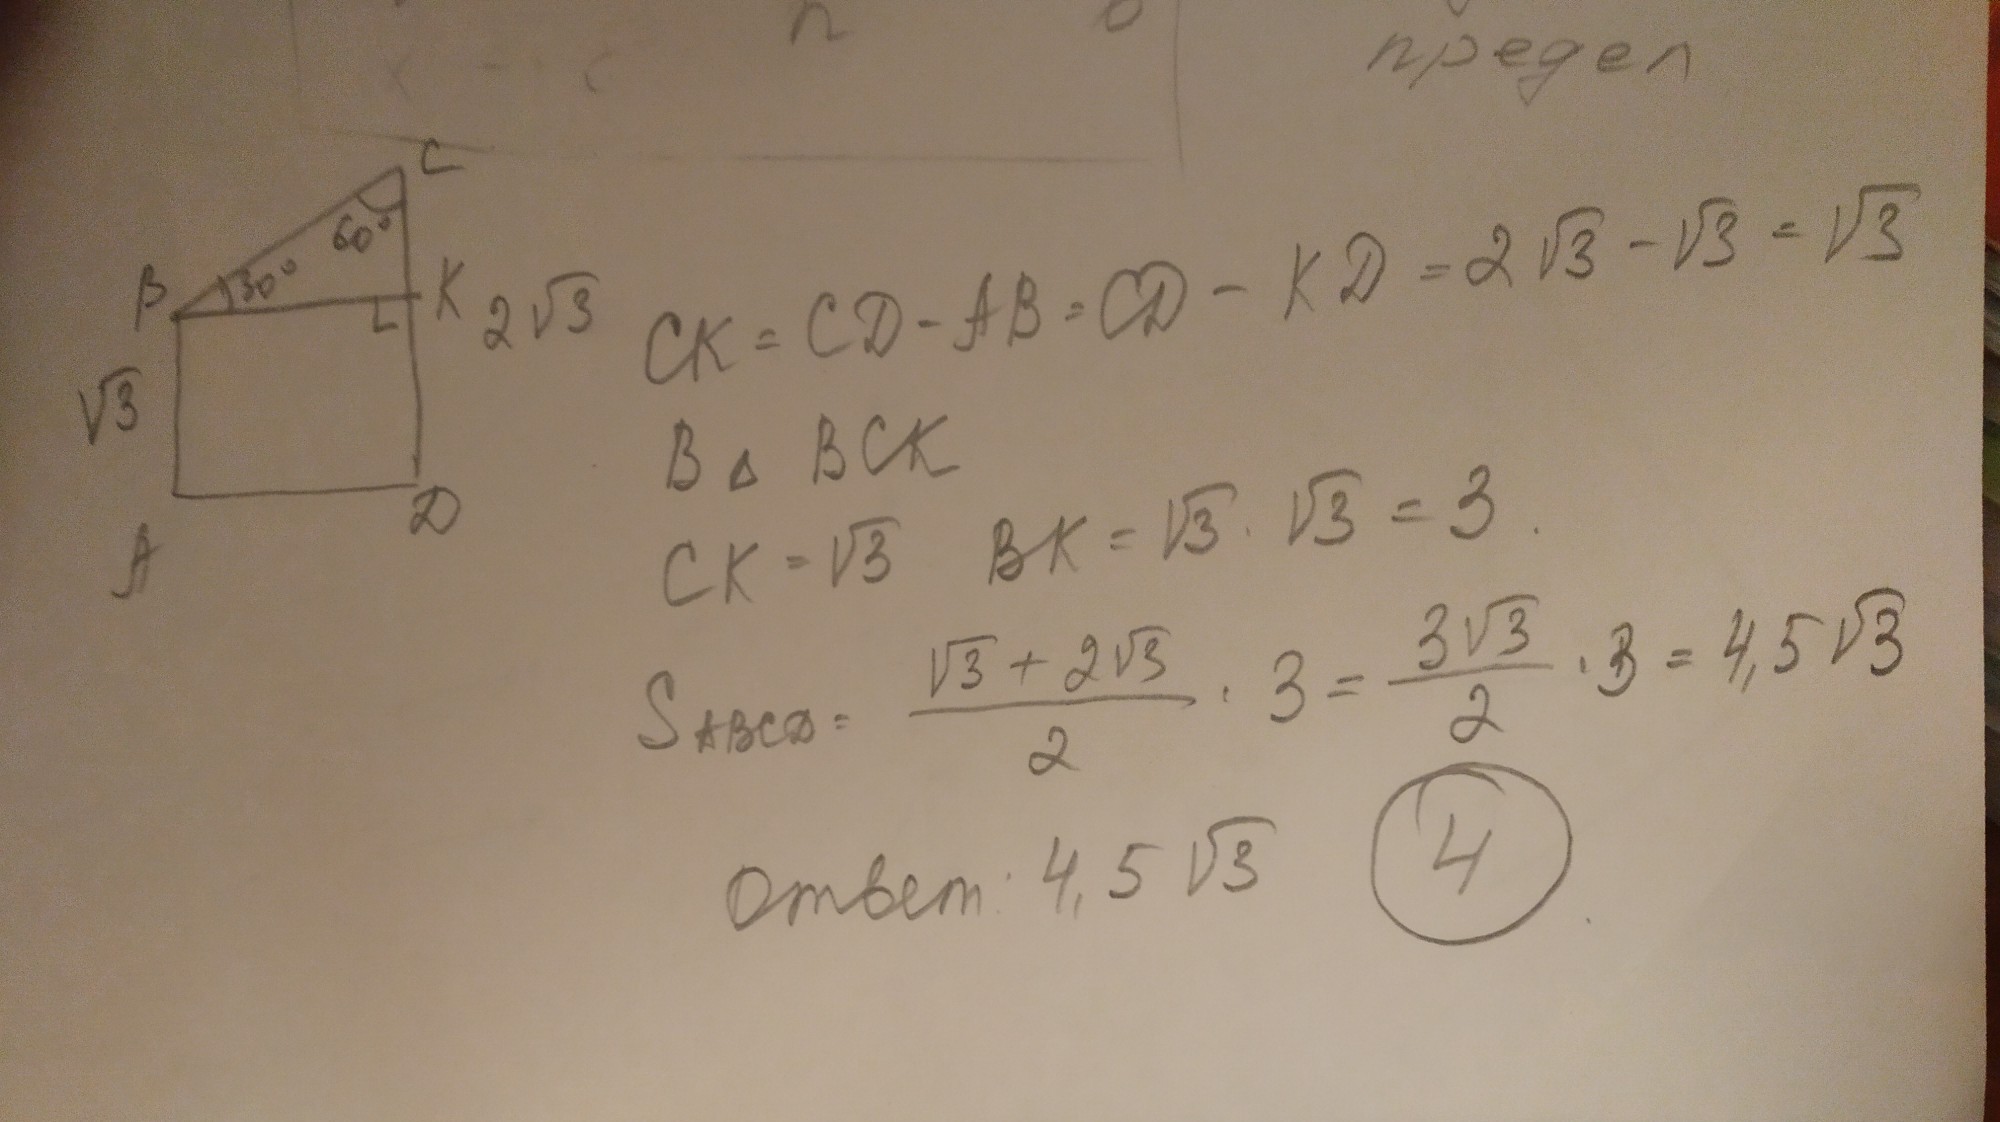 n
предел
C
60°
B 30° K 2√3
√3
A D
CK = CD - AB = CD - KD = 2√3 - √3 = √3
В △ BCK
CK = √3 BK = √3 · √3 = 3.
S ABCD = (√3 + 2√3)/2 · 3 = 3√3/2 · 3 = 4,5√3
Ответ: 4,5√3 4